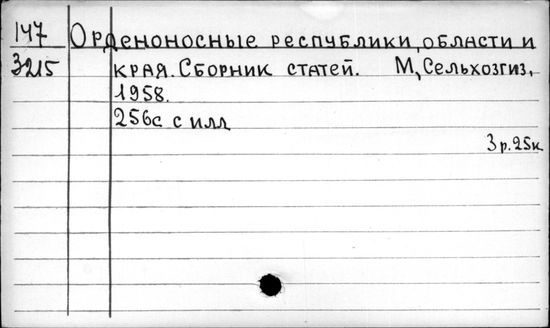 147 Орденоносные республики, области и
3215 края. Сборник статей. М, Сельхозгиз,
1958.
256с с илл
3р.25к